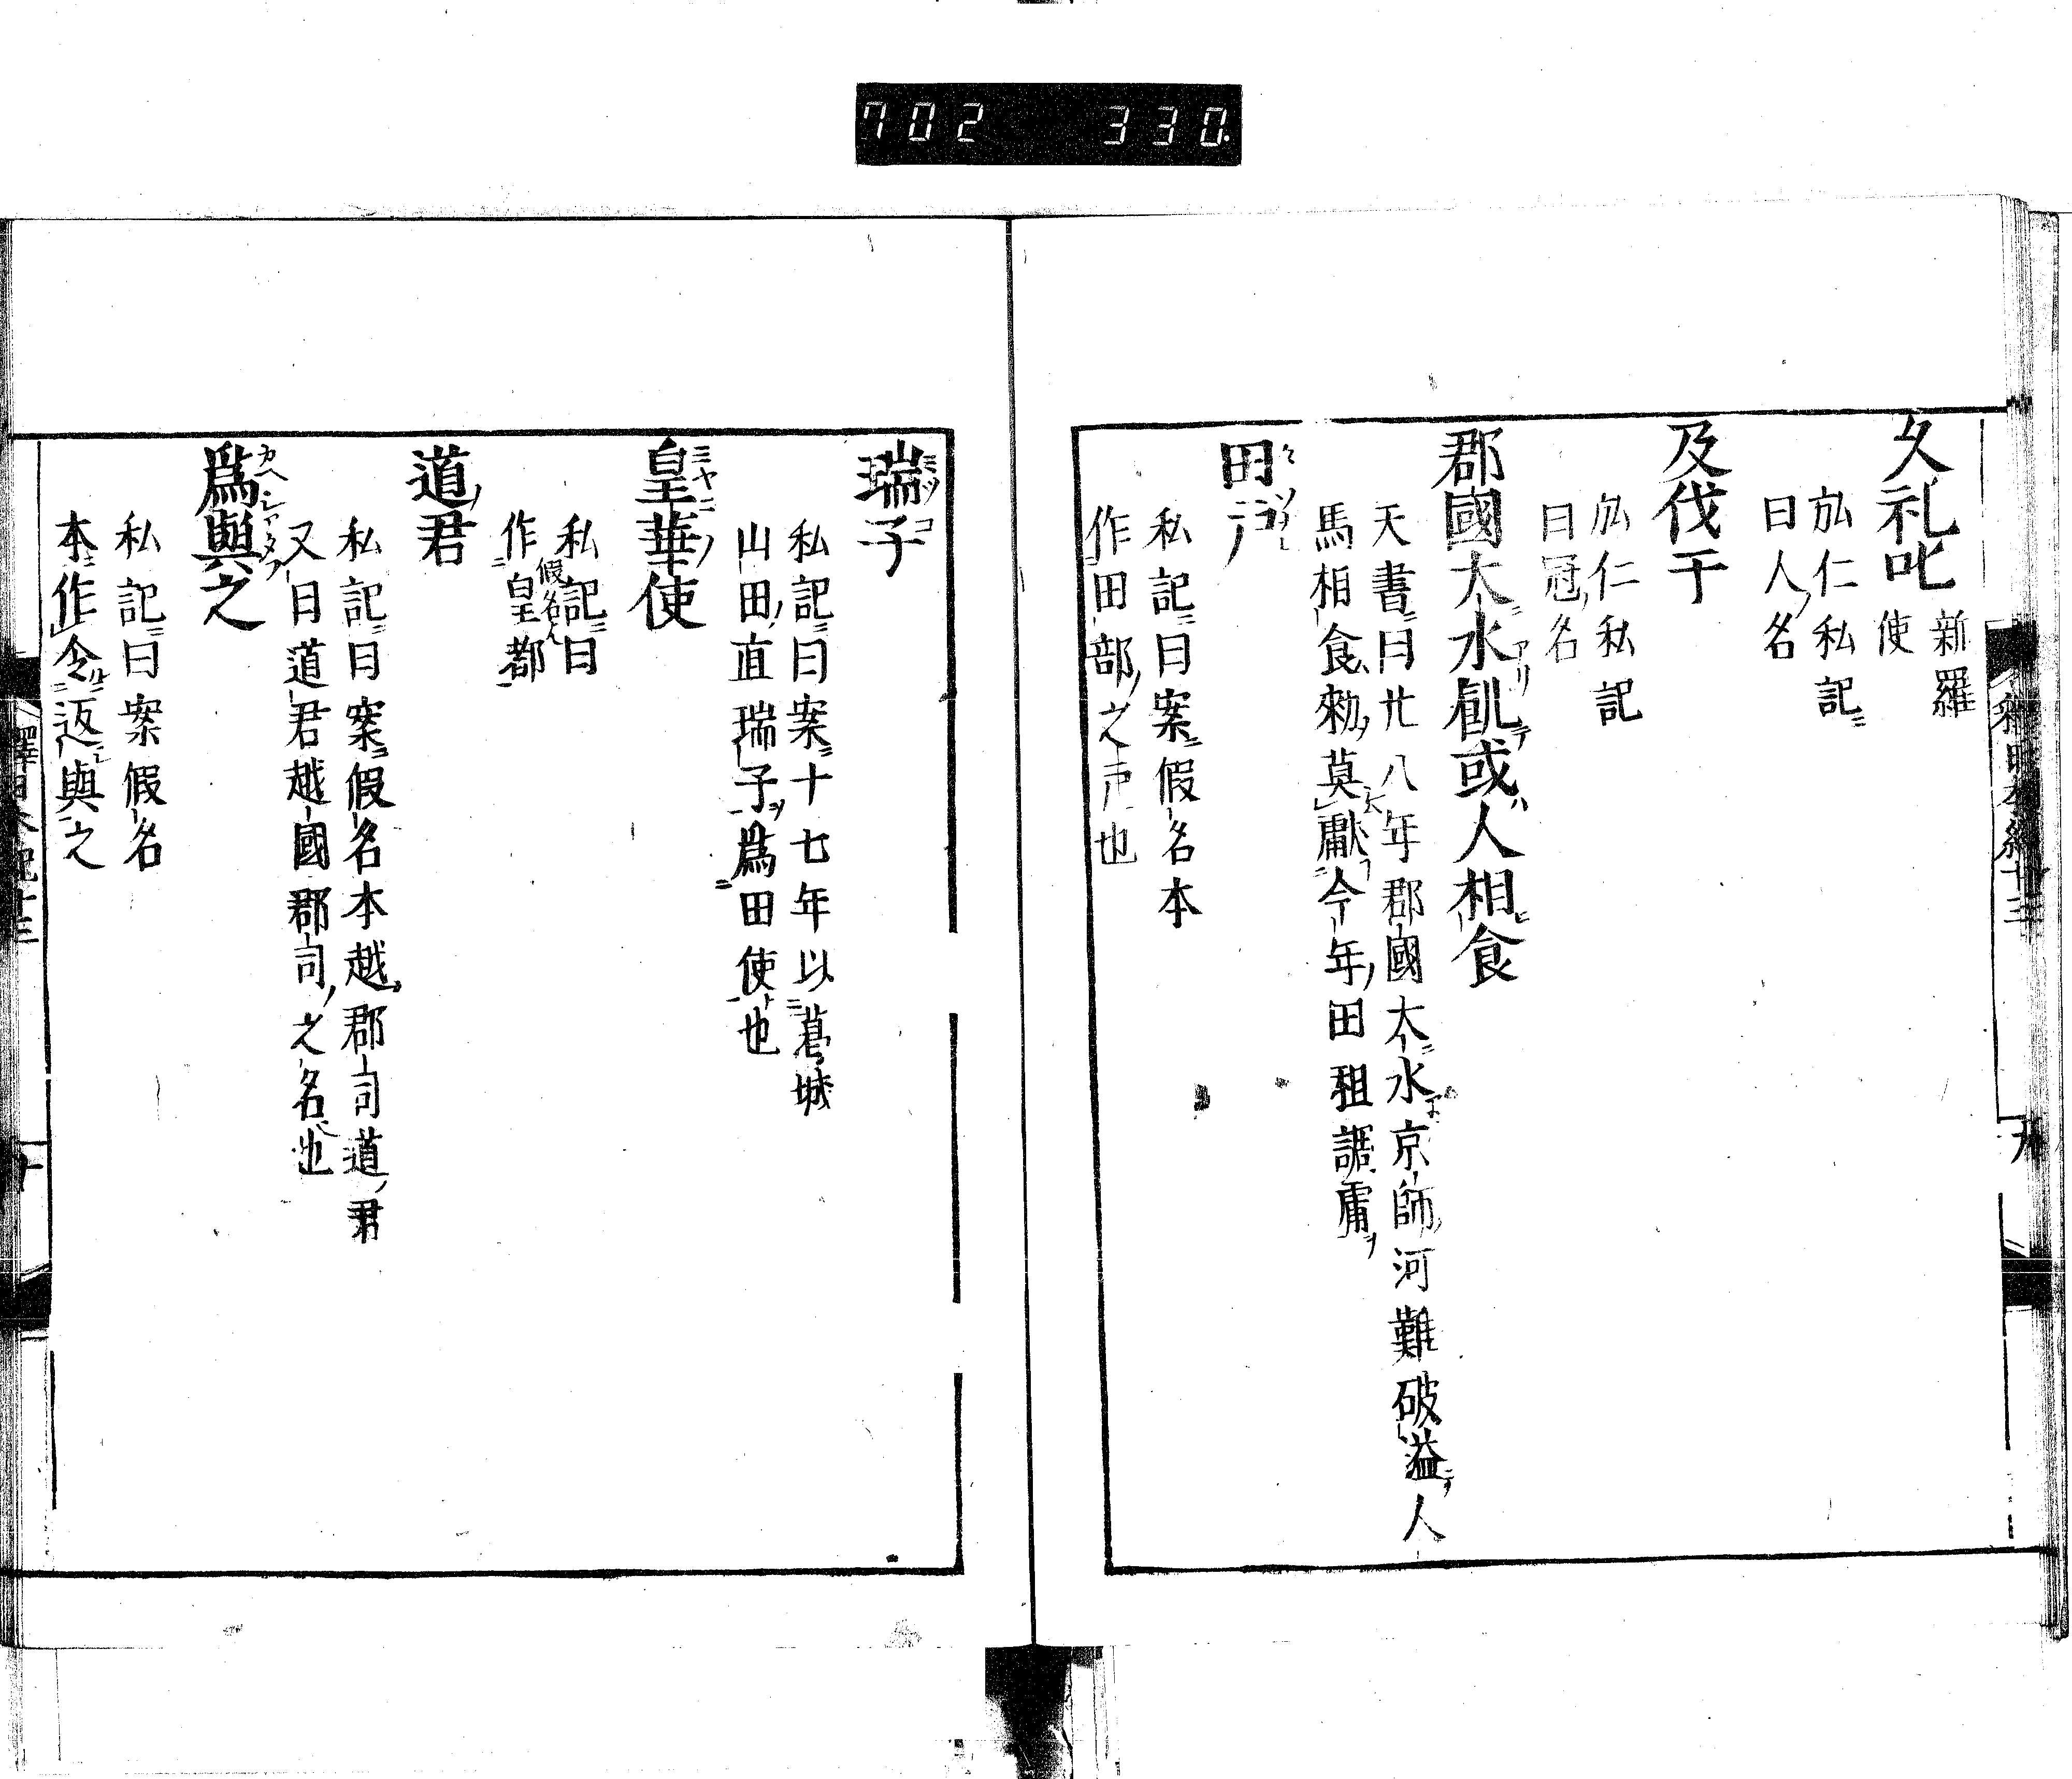 702 330.
久礼叱 新羅
使
弘仁私記
曰人名
及伐干
弘仁私記
曰冠名
郡國大水飢或人相食
天書曰廿八年郡國大水京師河難破溢人
馬相食勅莫獻今年田租調庸
田戸
私記曰案假名本
作田部之戸也
瑞子
私記曰案十七年以葛城
山田直瑞子爲田使也
皇華使
私記曰
假名本
作皇都
道君
私記曰案假名本越郡司道君
又曰道君越國郡司之名也
爲與之
私記曰案假名
本作令返與之